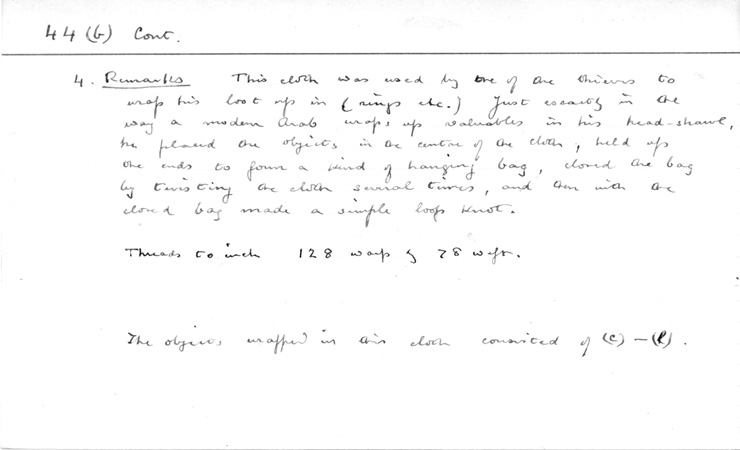 44 (b) Cont.
4. Remarks This cloth was used by one of the thieves to
wrap his loot up in (rings etc.) Just exactly in the
way a modern Arab wraps up valuables in his head-shawl,
he placed the objects in the centre of the cloth, held up
the ends to form a kind of hanging bag, closed the bag
by twisting the cloth several times, and then with the
closed bag made a simple loop knot.
Threads to inch 128 warp & 78 weft.
The objects wrapped in this cloth consisted of (c) - (l).